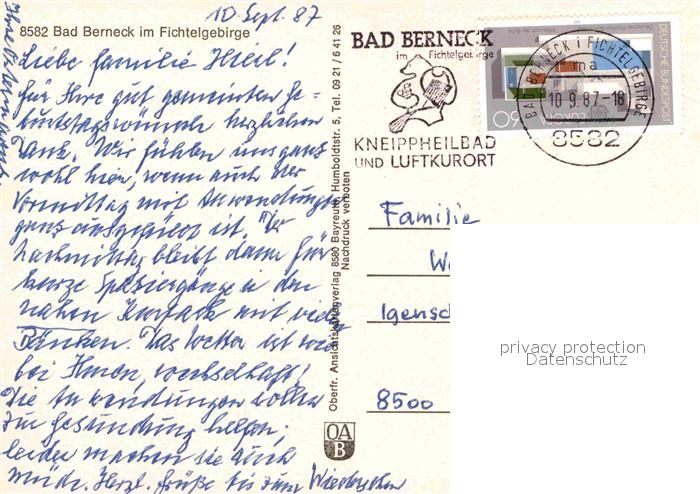 10. Sept. 87
8582 Bad Berneck im Fichtelgebirge
Liebe Familie
für Ihre gut gemeinten Ge-
burtstagswünsche herzlichen
Dank. Wir fühlen uns ganz
wohl hier, wenn auch der
Vormittag mit Anwendungen
ganz ausgefüllt ist. Der
Nachmittag bleibt dann für
kurze Spaziergänge in den
nahen Kurpark mit vielen
Bänken. Das Wetter ist wie
bei Ihnen, wechselhaft!
Die Anwendungen sollen
zur Gesundung helfen;
leider machen sie auch
müde. Herzl. Grüße bis zum Wiedersehen
Oberfr. Ansichtskartenverlag 8580 Bayreuth, Humboldtstr. 5, Tel. 09 21 / 6 41 26
Nachdruck verboten
OA
B
BAD BERNECK
im Fichtelgebirge
KNEIPPHEILBAD
UND LUFTKURORT
BAD BERNECK i FICHTELGEBIRGE
ma
10.9.87-18
8582
DEUTSCHE BUNDESPOST
EUROPA
60
Familie
Igensd
8500
privacy protection
Datenschutz